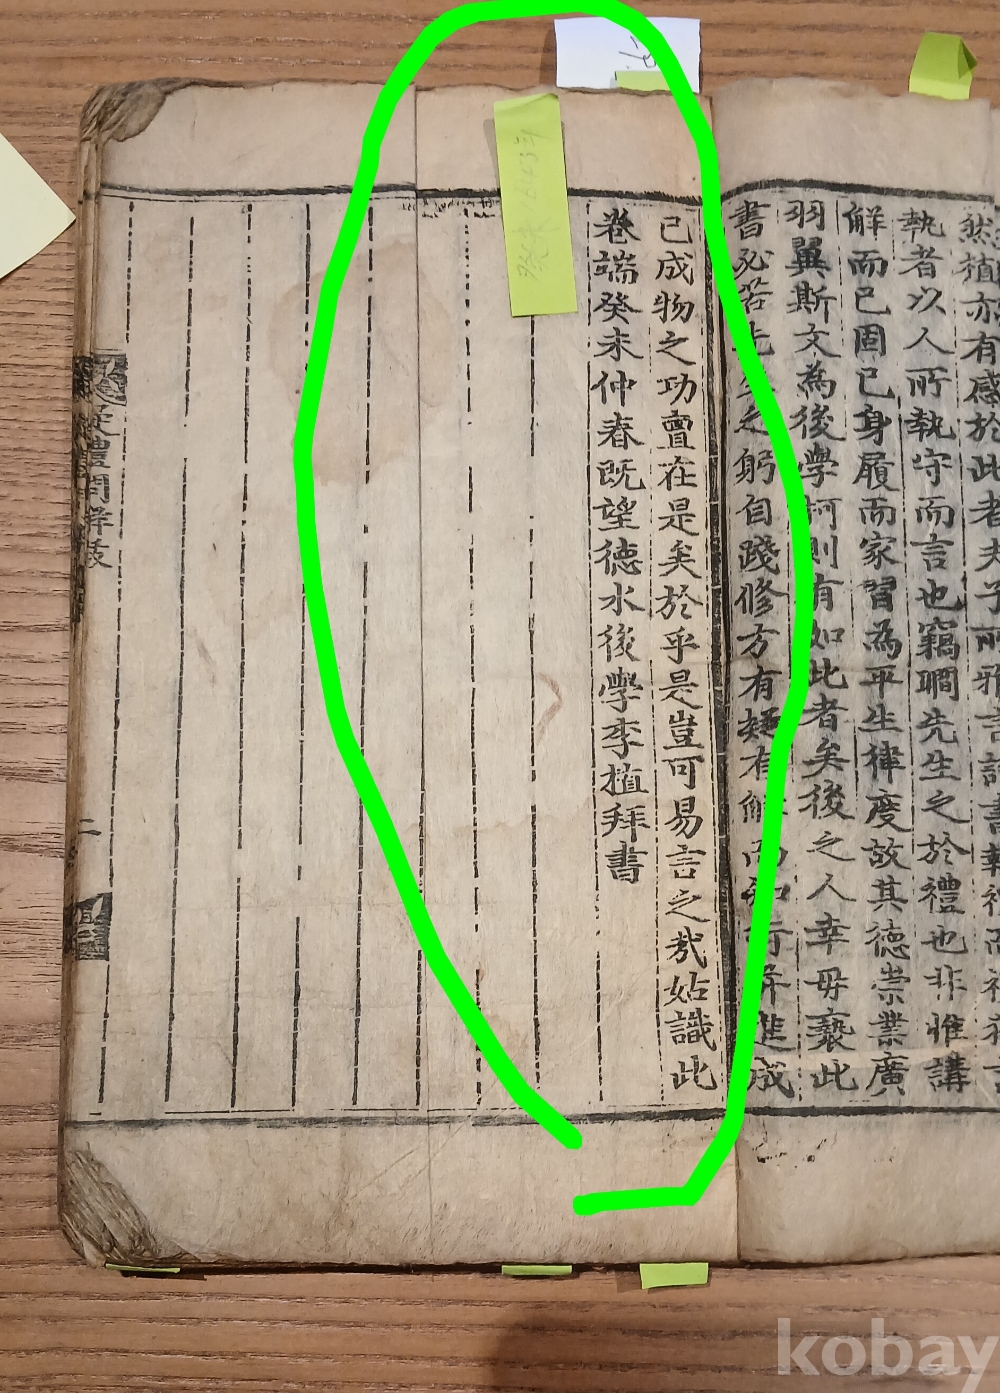 然植亦有感於此者夫子所雅言詩書執禮而
執者以人所執守而言也竊瞯先生之於禮也非惟講
解而已固已身履而家習為平生律度故其德崇業廣
羽翼斯文為後學柯則有如此者矣後之人幸毋褻此
書必若先生之躬自踐修方有疑有解而知行并進成
己成物之功亶在是矣於乎是豈可易言之哉姑識此
卷端癸未仲春既望德水後學李植拜書
疑禮問解跋
二
癸未 1643년
kobay